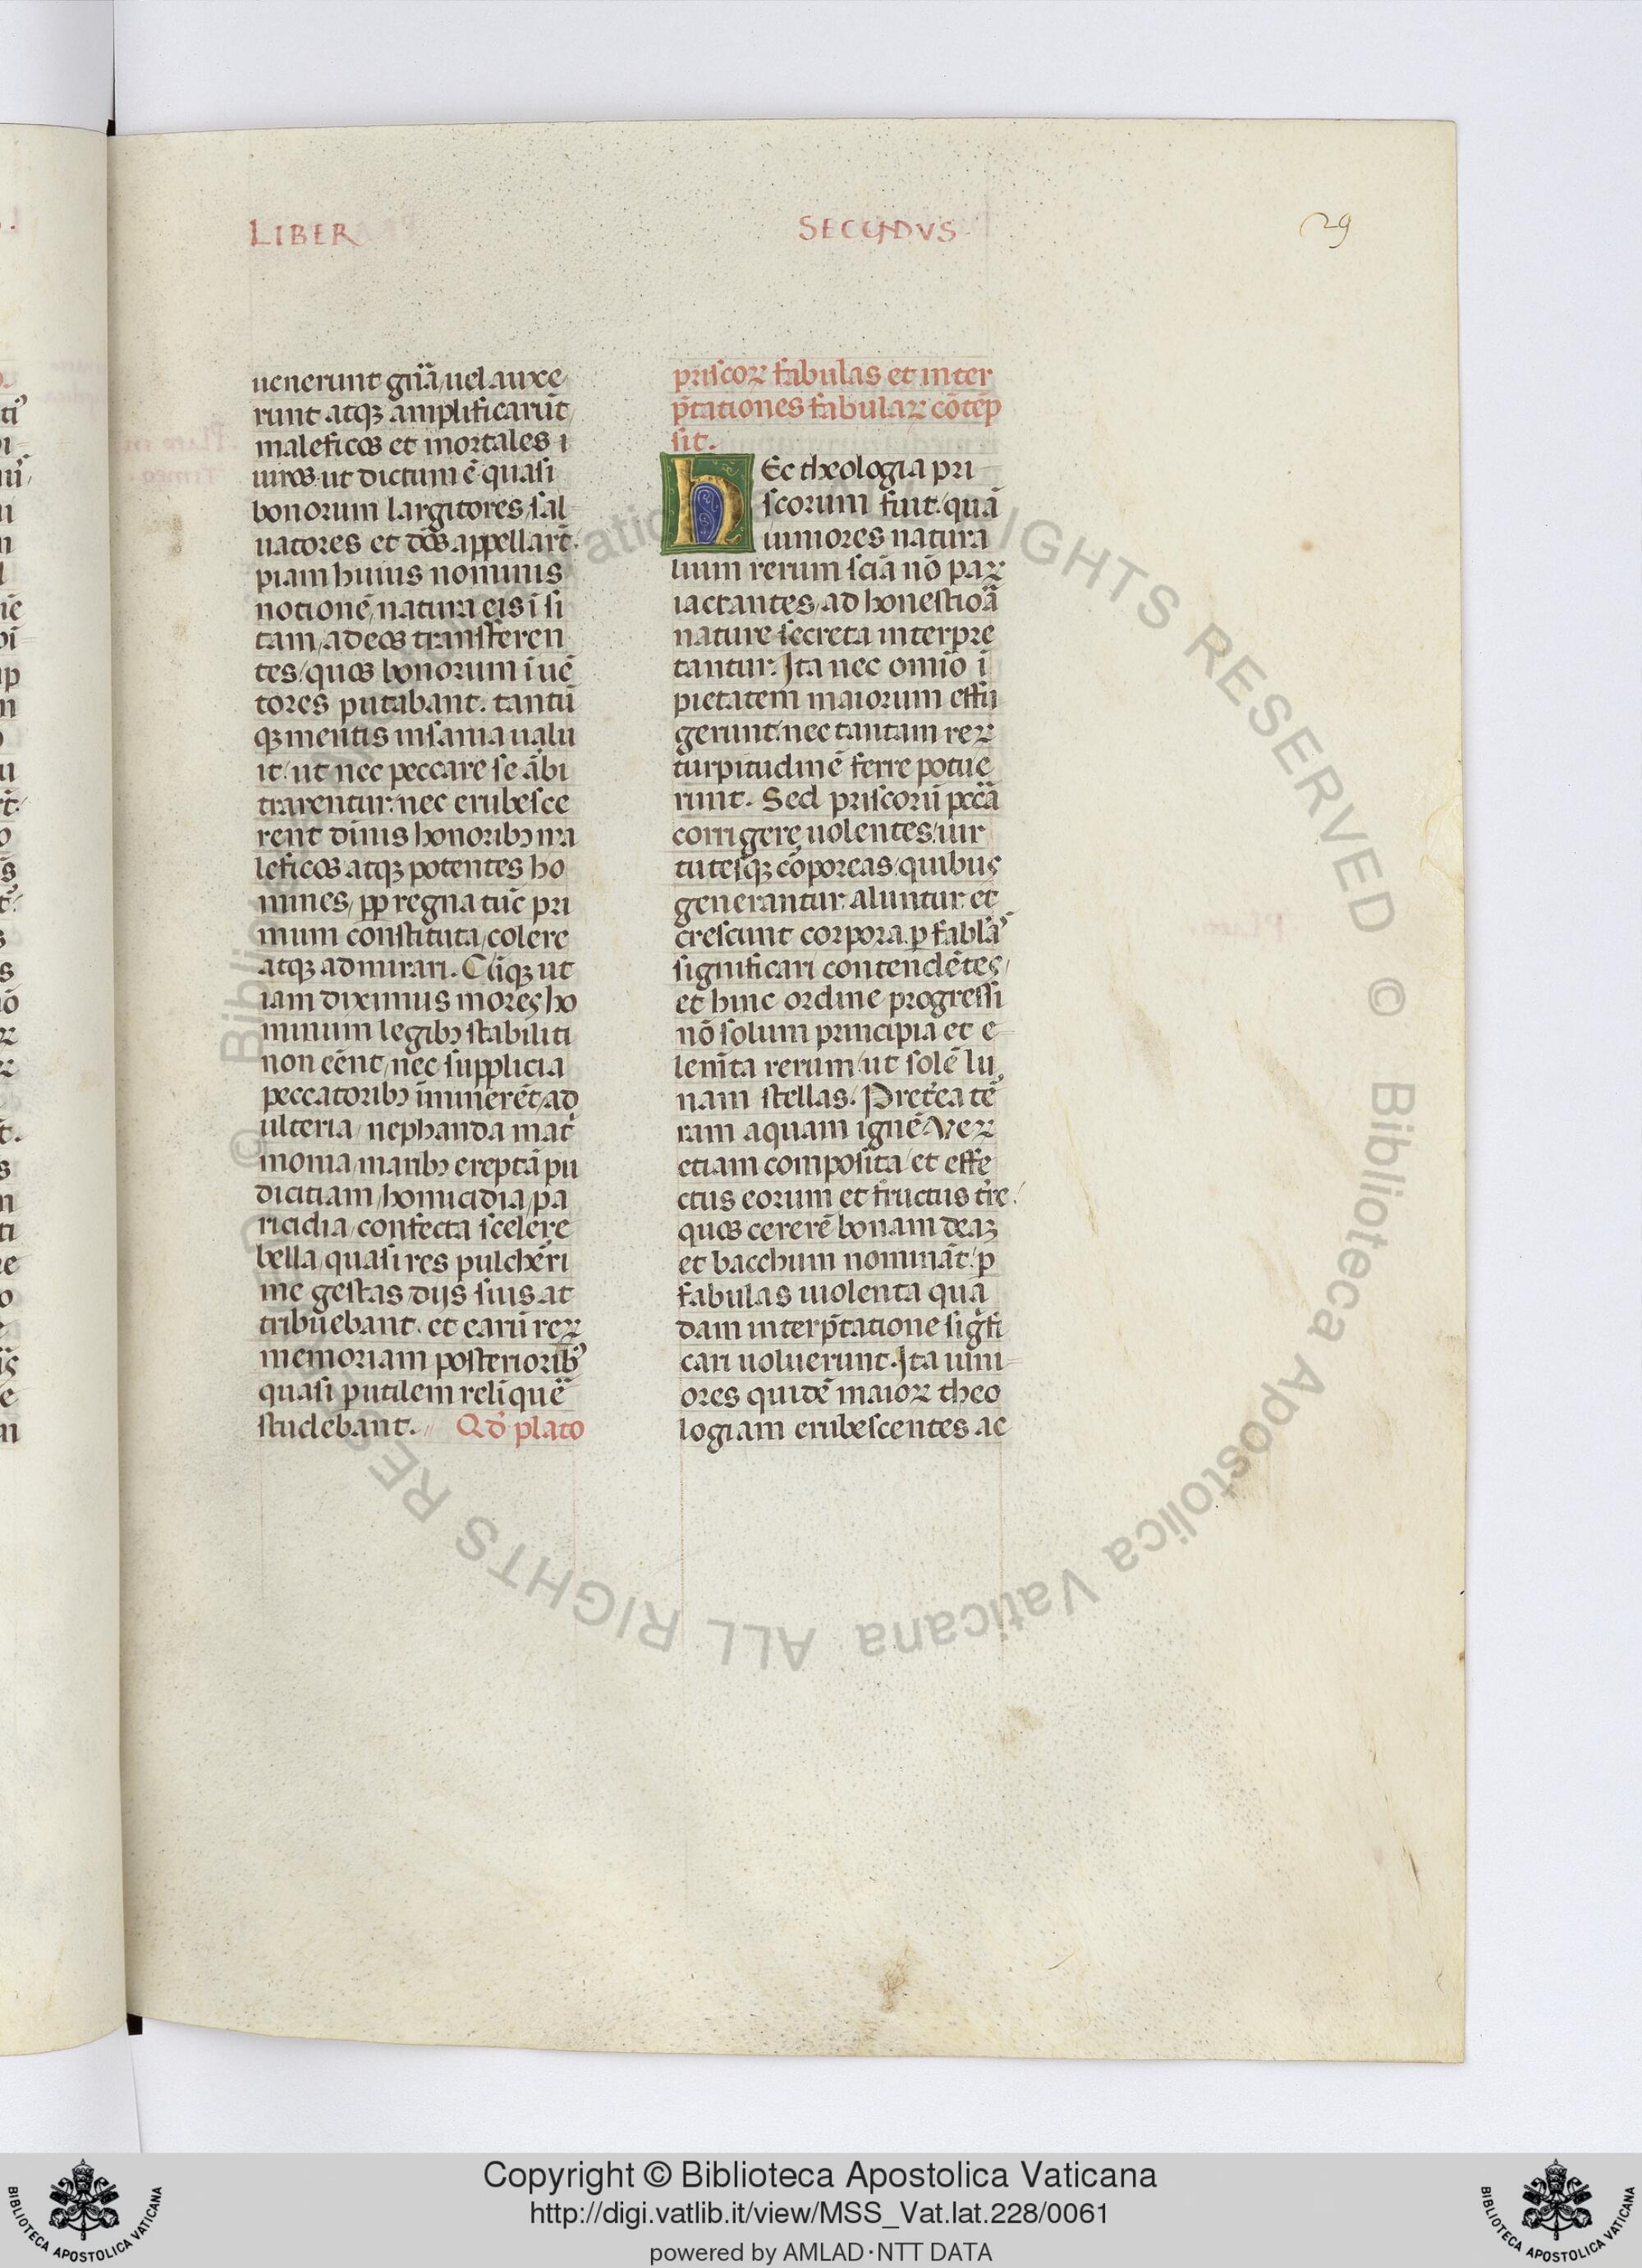 LIBER
SECUNDVS
29
uenerunt gr̃ã/uel auxe
runt atqꝫ amplificarũt/
maleficos et mortales i
uiros ut dictum ẽ quasi
bonorum largitores/sal
uatores et dõs appellarẽ.
piam huius nominis
notionẽ/natura eis ĩ si
tam/ad eos transferen
tes/quos bonorum ĩ uẽ
tores putabant. tantũ
qꝫ mentis insania ualu
it/ut nec peccare se ãbi
trarentur/nec erubesce
rent diuis honoribꝫ ma
leficos atqꝫ potentes ho
mines/ꝓp regna tũc pri
mum constituta/colere
atqꝫ admirari. Cũqꝫ ut
iam diximus mores ho
minum legibꝫ stabiliti
non eẽnt/nec supplicia
peccatoribꝫ ĩminerẽt/ad
ulteria/nephanda mat̃
monia/maribꝫ ereptã pu
dicitiam/homicidia/pa
ricidia/confecta scelere
bella/quasi res pulchẽri
me gestas dijs suis at
tribuebant. et earũ reꝝ
memoriam posterioribꝰ
quasi putilem reliquẽ
studebant. Qđ plato
priscoꝝ fabulas et inter
p̃tationes fabulaꝝ cõtẽp
sit.
hEc theologia pri
scorum fuit/quã
iuniores natura
lium rerum sciã nõ paꝝ
iactantes/ad honestioã
nature secreta interpre
tantur. Ita nec omĩo ĩ
pietatem maiorum effu
gerunt/nec tantam reꝝ
turpitudinẽ ferre potue
runt. Sed priscorũ pccã
corrigere uolentes/uir
tutesqꝫ cõporeas/quibus
generantur aluntur et
crescunt corpora/ꝑ fabl̃aˢ
significari contendẽtes/
et hinc ordine progressi
nõ solum principia et e
lem̃ta rerum/ut solẽ lu
nam stellas. Pret̃ea tẽ
ram aquam ignẽ Aeꝝ
etiam composita/et effe
ctus eorum et fructus t̃re/
quos cererẽ bonam deaꝫ
et bacchum nominãt/ꝑ
fabulas uiolenta quã
dam interp̃tatione sig̃fi
cari uoluerunt. Ita iuni
ores quidẽ maioꝝ theo
logiam erubescentes ac
Copyright © Biblioteca Apostolica Vaticana
http://digi.vatlib.it/view/MSS_Vat.lat.228/0061
powered by AMLAD·NTT DATA